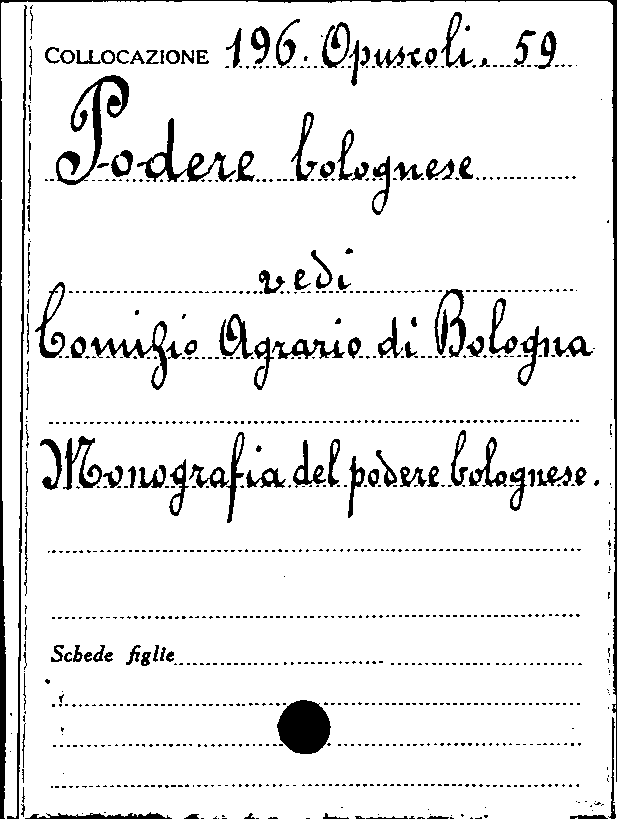 COLLOCAZIONE 196. Opuscoli. 59
Podere bolognese
vedi
Comizio Agrario di Bologna
Monografia del podere bolognese.
Schede figlie